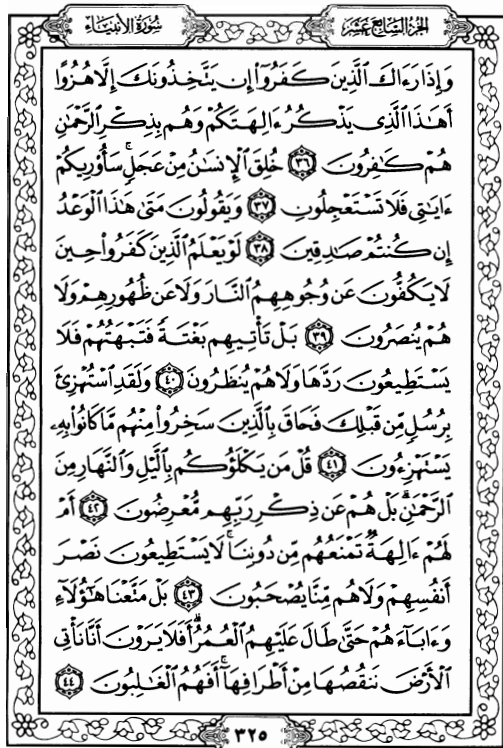 سُورَةُ الأَنبِيَاءِ
الجُزْءُ السَّابِعَ عَشَرَ
وَإِذَا رَءَاكَ ٱلَّذِينَ كَفَرُوٓا۟ إِن يَتَّخِذُونَكَ إِلَّا هُزُوًا
أَهَـٰذَا ٱلَّذِى يَذْكُرُ ءَالِهَتَكُمْ وَهُم بِذِكْرِ ٱلرَّحْمَـٰنِ
هُمْ كَـٰفِرُونَ ٣٦ خُلِقَ ٱلْإِنسَـٰنُ مِنْ عَجَلٍ ۚ سَأُو۟رِيكُمْ
ءَايَـٰتِى فَلَا تَسْتَعْجِلُونِ ٣٧ وَيَقُولُونَ مَتَىٰ هَـٰذَا ٱلْوَعْدُ
إِن كُنتُمْ صَـٰدِقِينَ ٣٨ لَوْ يَعْلَمُ ٱلَّذِينَ كَفَرُوا۟ حِينَ
لَا يَكُفُّونَ عَن وُجُوهِهِمُ ٱلنَّارَ وَلَا عَن ظُهُورِهِمْ وَلَا
هُمْ يُنصَرُونَ ٣٩ بَلْ تَأْتِيهِم بَغْتَةً فَتَبْهَتُهُمْ فَلَا
يَسْتَطِيعُونَ رَدَّهَا وَلَا هُمْ يُنظَرُونَ ٤٠ وَلَقَدِ ٱسْتُهْزِئَ
بِرُسُلٍ مِّن قَبْلِكَ فَحَاقَ بِٱلَّذِينَ سَخِرُوا۟ مِنْهُم مَّا كَانُوا۟ بِهِۦ
يَسْتَهْزِءُونَ ٤١ قُلْ مَن يَكْلَؤُكُم بِٱلَّيْلِ وَٱلنَّهَارِ مِنَ
ٱلرَّحْمَـٰنِ ۗ بَلْ هُمْ عَن ذِكْرِ رَبِّهِم مُّعْرِضُونَ ٤٢ أَمْ
لَهُمْ ءَالِهَةٌ تَمْنَعُهُم مِّن دُونِنَا ۚ لَا يَسْتَطِيعُونَ نَصْرَ
أَنفُسِهِمْ وَلَا هُم مِّنَّا يُصْحَبُونَ ٤٣ بَلْ مَتَّعْنَا هَـٰٓؤُلَآءِ
وَءَابَآءَهُمْ حَتَّىٰ طَالَ عَلَيْهِمُ ٱلْعُمُرُ ۗ أَفَلَا يَرَوْنَ أَنَّا نَأْتِى
ٱلْأَرْضَ نَنقُصُهَا مِنْ أَطْرَافِهَآ ۚ أَفَهُمُ ٱلْغَـٰلِبُونَ ٤٤
٣٢٥